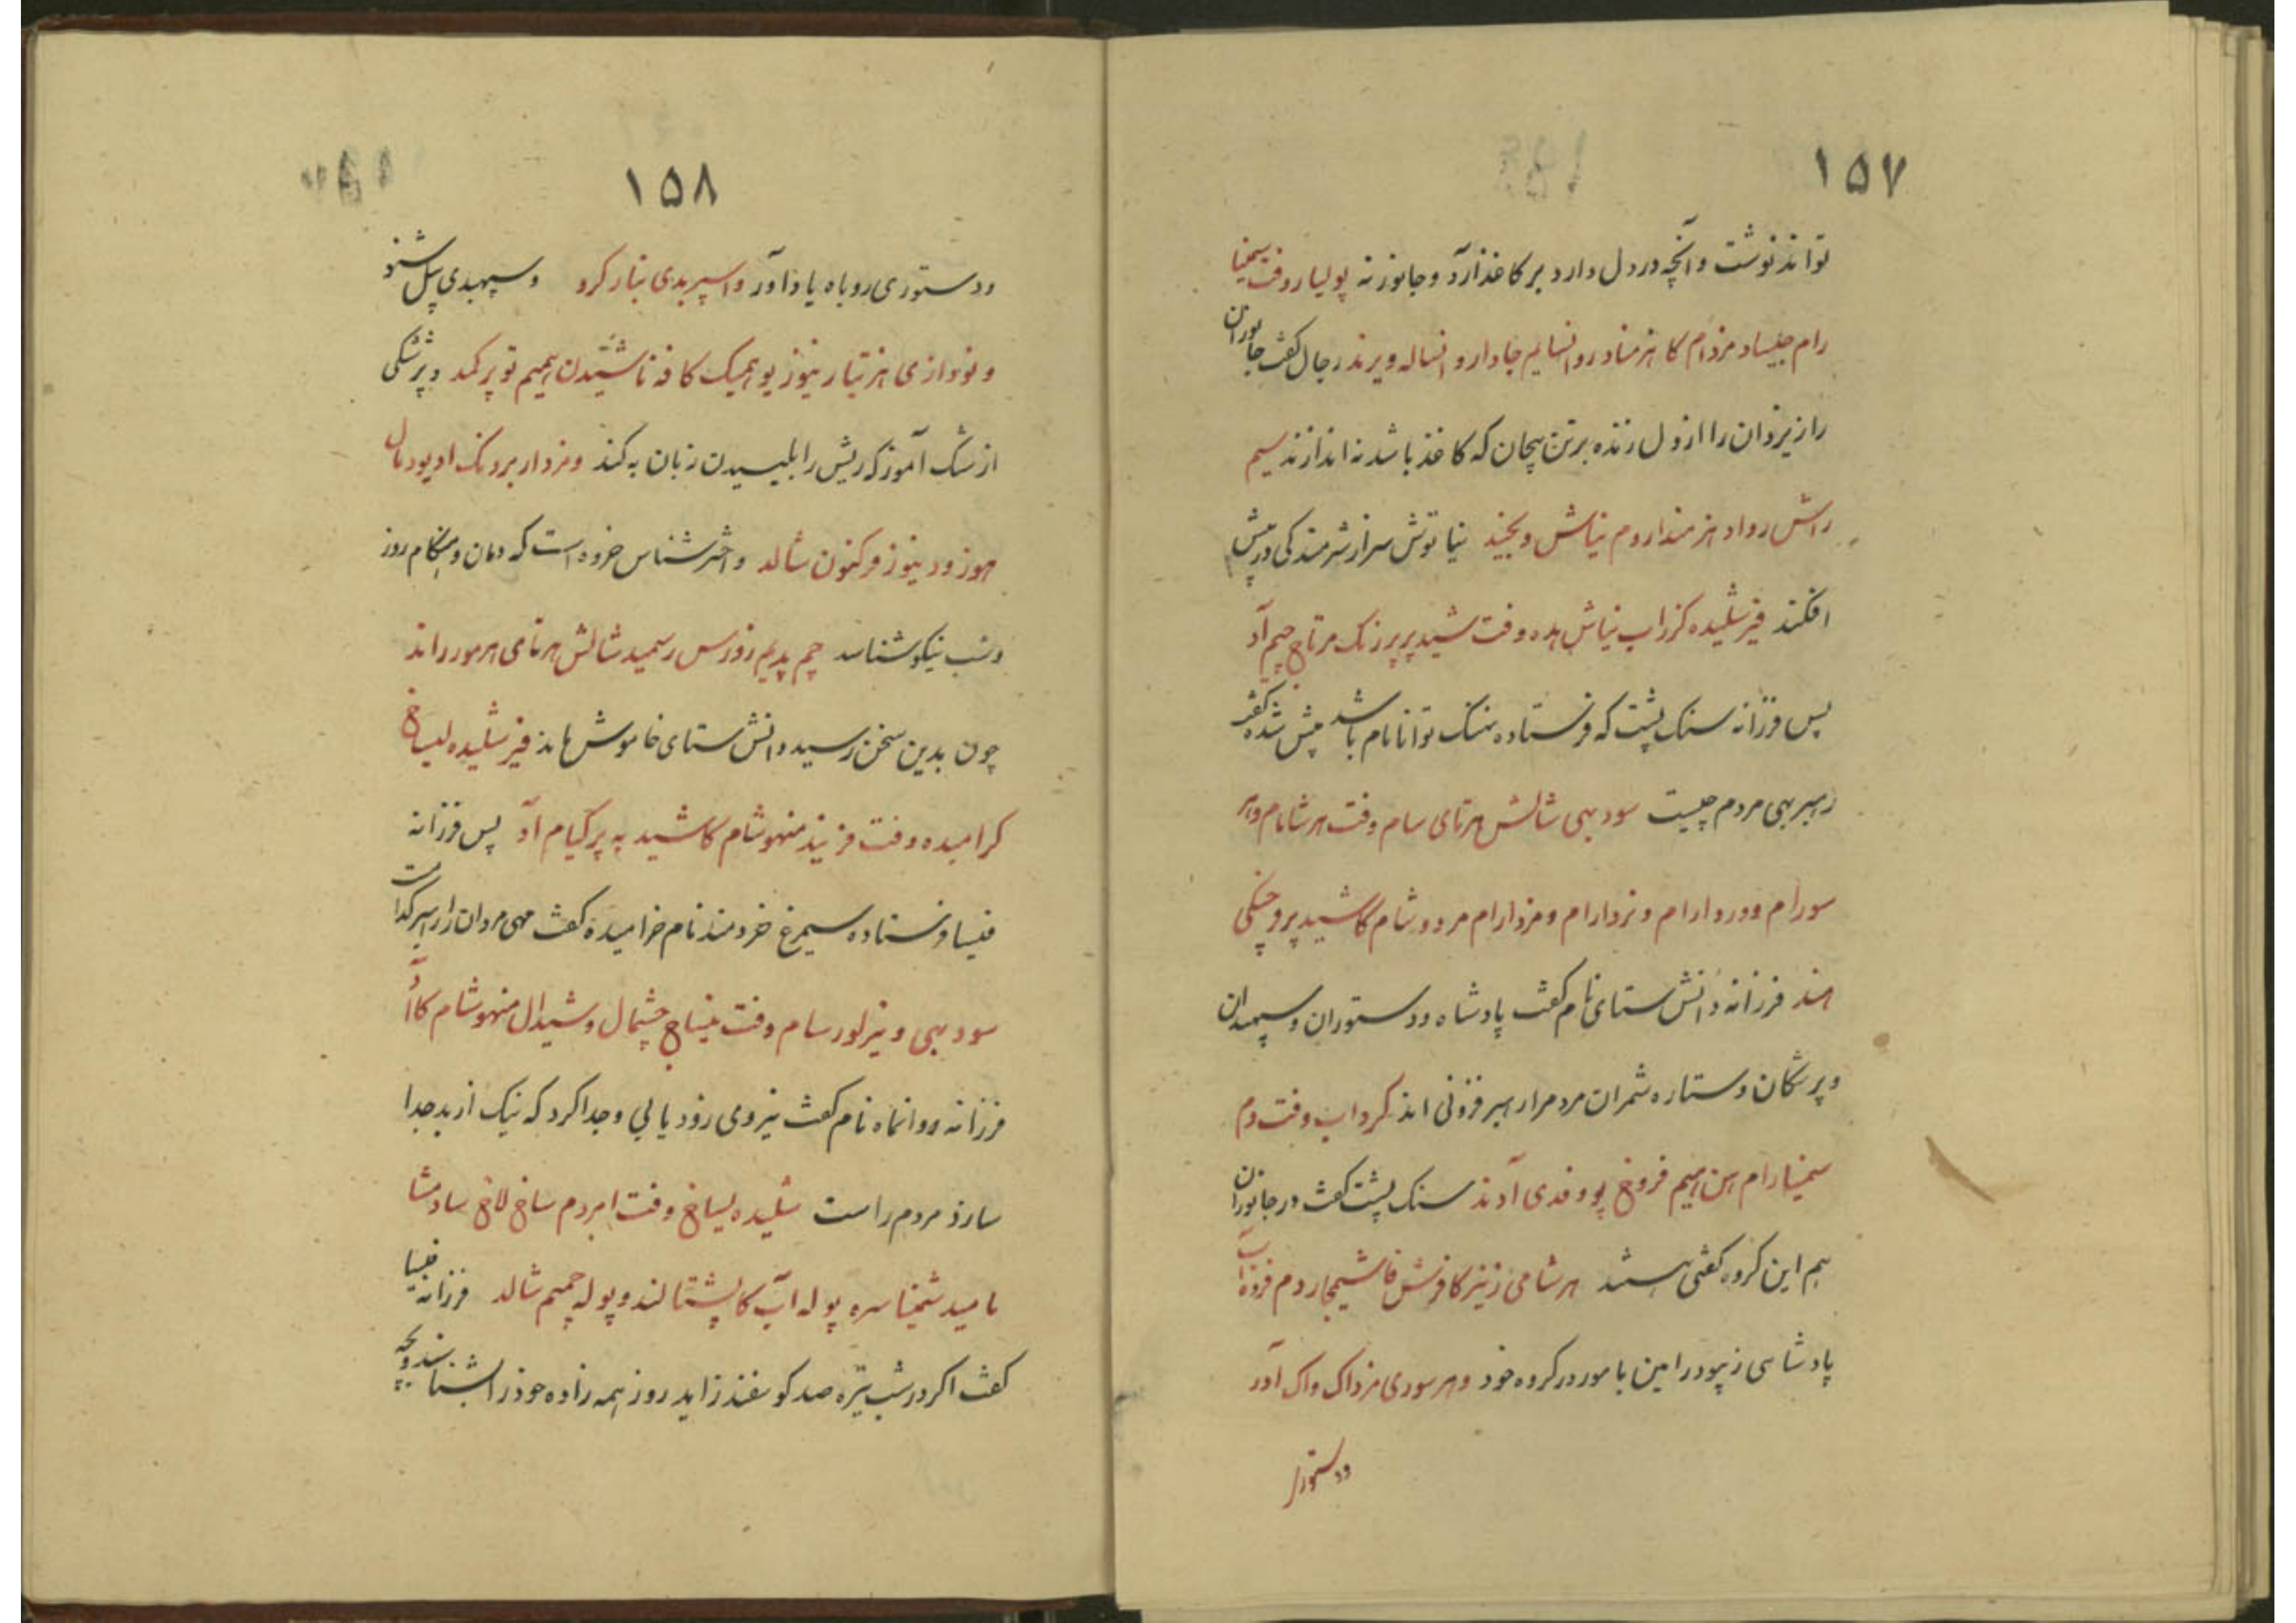 ۱۵۷
تواند نوشت و آنچه در دل دارد بر کاغذ آرد و جانور نه پولیار وفت سیخنیا
رام جیساد مزدام کا هنرمناد روانسالیم جادار و انساله ویرند رجال گفت جانوران
راز یزدان را از دل زنده برتن بیجان که کاغذ باشد نه اندازند سیم
راش رواد هنرمندار دم نیاش و بجیند نیاتوش سر از شرمندگی در پیش
افکند فیر شلیده کزراب نیاش بده وفت شید پر پرزنک مرتاج جیم آد
پس فرزانه سنگ پشت که فرستاده نهنگ توانا نام باشد پیش شده گفت
رهبر بهی مردم چیست سود بهی شالش هرتای سام وفت هر شامام و
سورام و وردارام و نردارام و مزدارام مردور شام کاشید پر وخکی
اند فرزانه دانش ستای نام گفت پادشاه و دستوران و سپهبدان
و پزشکان و ستاره شمران مردم را رهبر فزونی اند کرداب وفت دم
سیخنیارام هن اهیم فروغ پووفدی آدند سنگ پشت گفت در جانوران
هم این گروه گفتی هستند هر شامی زنیز کافرنش فاشیمجار دم فزود آب
پادشاهی زیبودر امین با مور در گروه خود و هر سوری مزداک واک آدر
ودستور
۱۵۸
ودستوری روباه یاد آور واسپربدی بتار کرد وسپهبدی پیل شنو
ونودازی هنر تیار نیوز یو اهیک کافه ناشتیدن اهیم توپر کمد و پزشکی
از سگ آموز که ریش را بلیسیدن زبان به کند ومزدار بردنک اویودمال
هوز ودینوز فرکنون شالد و اخترشناس خروه است که دمان و هنگام روز
و شب نیکو شناسد چم پدیم زوزس رسمید شالش هرتای هرمور راند
چون بدین سخن رسید دانش ستای خاموش ماند فیر شلیده لیساخ
کرامیده وفت فرنید منهوشام کاشید په پر کیام آد پس فرزانه
فیسا فرستاده سیمرغ خردمند نام خرامیده گفت مهی مردان را راهبر کدامست
سود بهی و نیرلور سام وفت میناج چشمال وشیدال منهوشام کا آد
فرزانه روانماه نام گفت نیروی رود یابی وجدا کرد که نیک از بد جدا
سازد مردم راست شلیده لیساخ وفت امردم ساخ للاخ سادمشا
مامید شیخنا سره پوله آب کا پشتالند و پوله چمیم شالد فرزانه فیسا
گفت اگر در شب تیره صد گوسفند زاید روز همه زاده خود را بشناسند و بچه